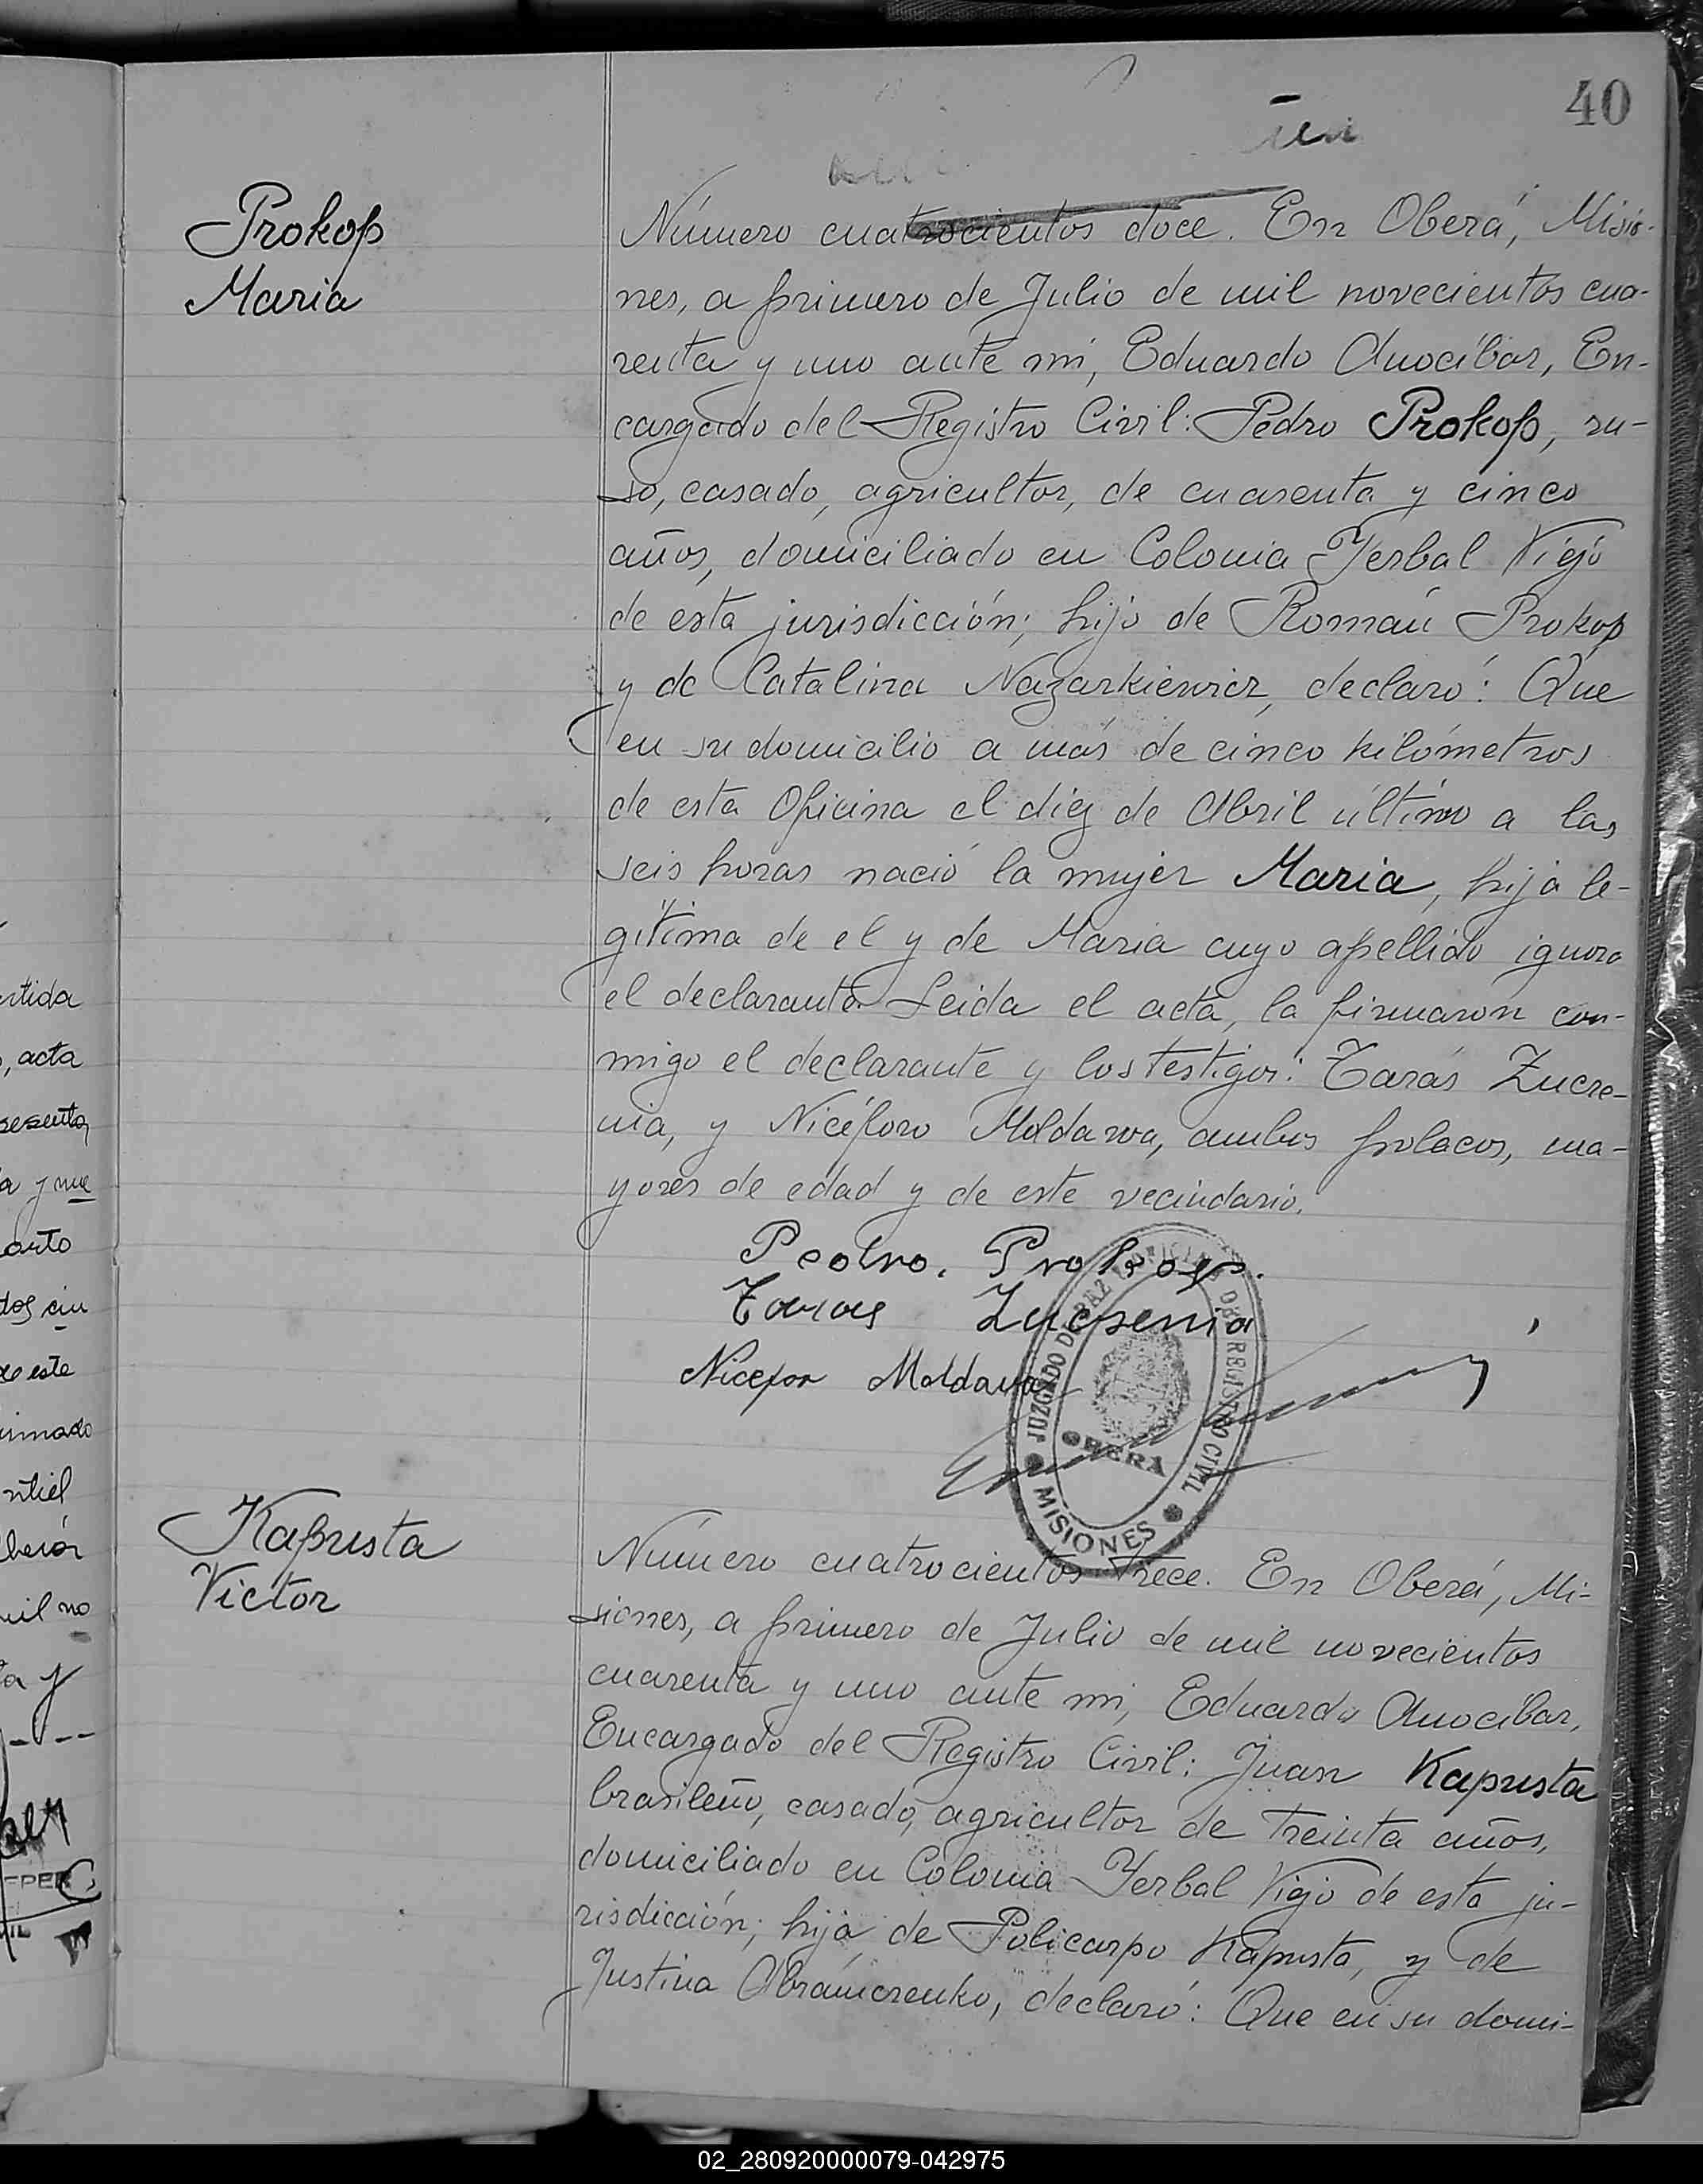 40
Prokop
Maria
Número cuatrocientos doce. En Oberá, Misio-
nes, a primero de Julio de mil novecientos cua-
renta y uno ante mi, Eduardo Anocíbar, En-
cargado del Registro Civil: Pedro Prokop, ru-
so, casado, agricultor, de cuarenta y cinco
años, domiciliado en Colonia Yerbal Viejo
de esta jurisdicción; hijo de Román Prokop
y de Catalina Nazarkiewicz, declaró: Que
en su domicilio a más de cinco kilómetros
de esta Oficina el diez de Abril último a las
seis horas nació la mujer Maria, hija le-
gítima de el y de Maria cuyo apellido ignora
el declarante. Leida el acta, la firmaron con-
migo el declarante y los testigos: Tarás Zucre-
nia, y Nicéforo Moldawa, ambos polacos, ma-
yores de edad y de este vecindario.
Pedro. Prokop.
Taras Zucrenia
Nicefor Moldawa
JUZGADO DE PAZ REGISTRO CIVIL
OBERA
MISIONES
Kapusta
Victor
Número cuatrocientos trece. En Oberá, Mi-
siones, a primero de Julio de mil novecientos
cuarenta y uno ante mi, Eduardo Anocíbar,
Encargado del Registro Civil; Juan Kapusta
brasileño, casado, agricultor de treinta años,
domiciliado en Colonia Yerbal Viejo de esta ju-
risdicción; hijo de Policarpo Kapusta, y de
Justina Abramczenko, declaró: Que en su domi-
rtida
, acta
a y nue
arto
este
mil no
02_280920000079-042975